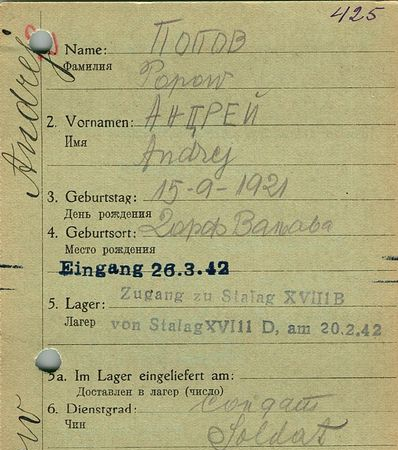 425
1. Name: ПОПОВ
Фамилия
Popow
2. Vornamen: АНДРЕЙ
Имя
Andrej
3. Geburtstag: 15-9-1921
День рождения
4. Geburtsort:
Место рождения
Eingang 26.3.42
5. Lager: Zugang zu Stalag XVIIIB
Лагер von Stalag XVIII D, am 20.2.42
5a. Im Lager eingeliefert am:
Доставлен в лагер (число)
6. Dienstgrad: солдат
Чин
Soldat
Andrej
ow